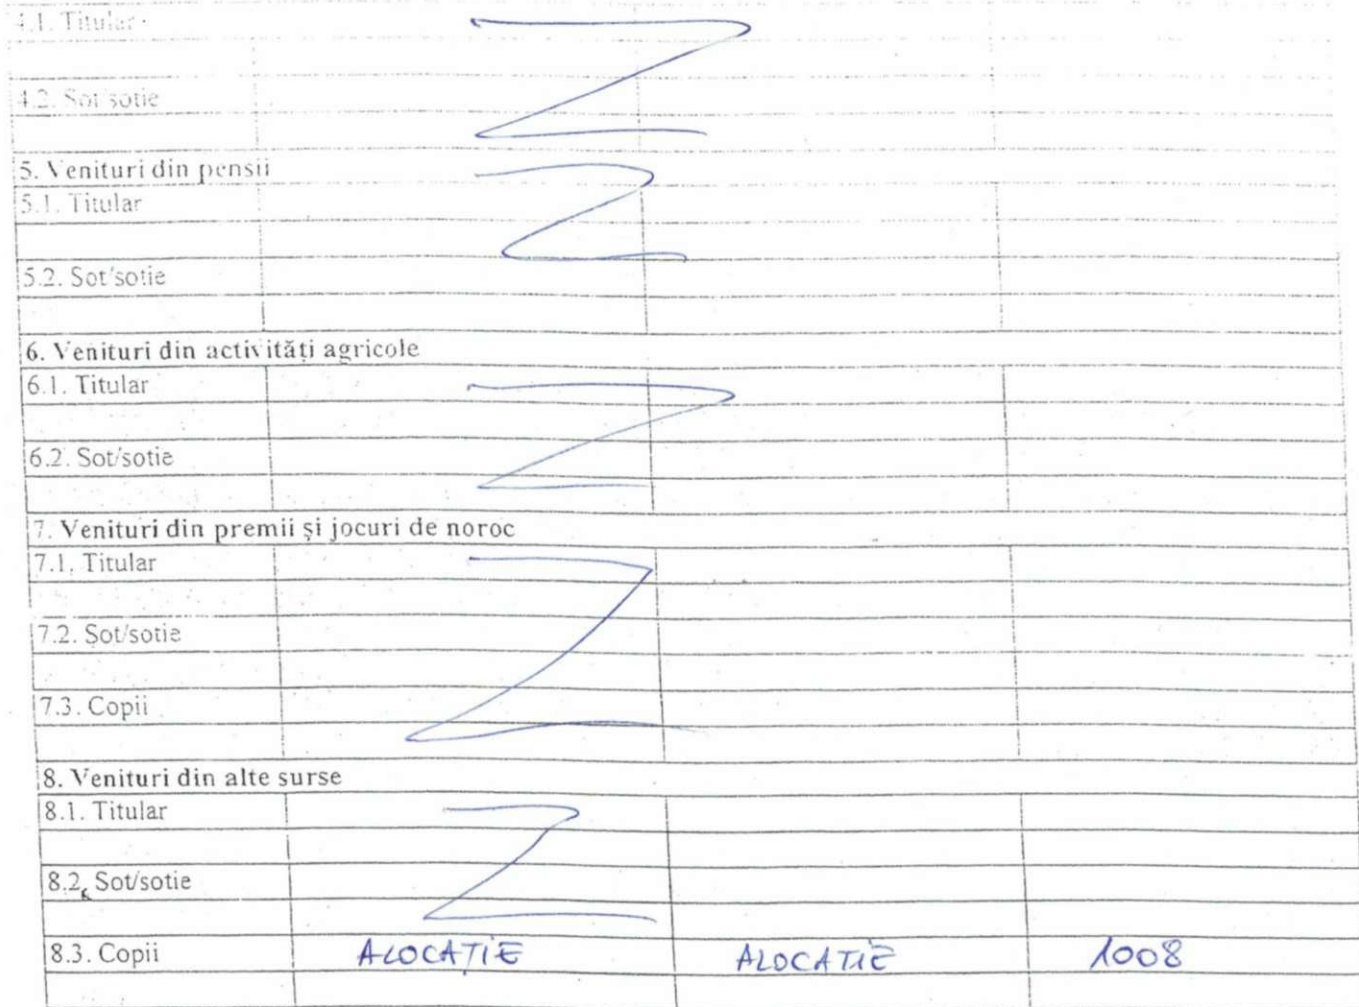 4.1. Titular
4.2. Sot/sotie
5. Venituri din pensii
5.1. Titular
5.2. Sot/sotie
6. Venituri din activități agricole
6.1. Titular
6.2. Sot/sotie
7. Venituri din premii și jocuri de noroc
7.1. Titular
7.2. Sot/sotie
7.3. Copii
8. Venituri din alte surse
8.1. Titular
8.2. Sot/sotie
8.3. Copii ALOCAȚIE ALOCATIE 1008